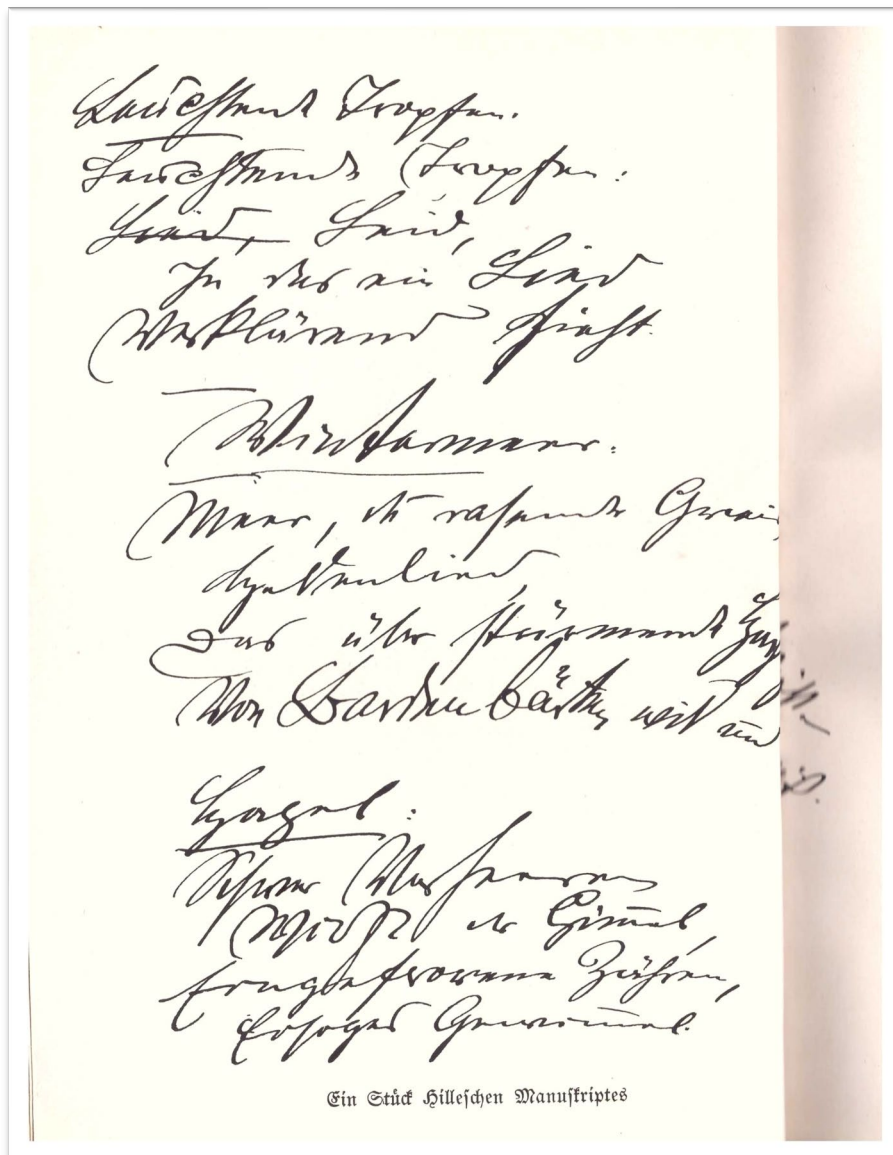 Leuchtende Tropfen.
Leuchtende Tropfen:
Lied, Leid,
In das ein Lied
Verklärend zieht.
Wintermeer.
Meer, du rasende Greisin,
Heldenlied,
Das über stürmende
Von Bardenbärten weit und
Hagel:
Schwer Verheeren
Wirft der Himmel,
Erngefrorene Zähren,
Gewimmel.
Ein Stück Hilleschen Manuskriptes